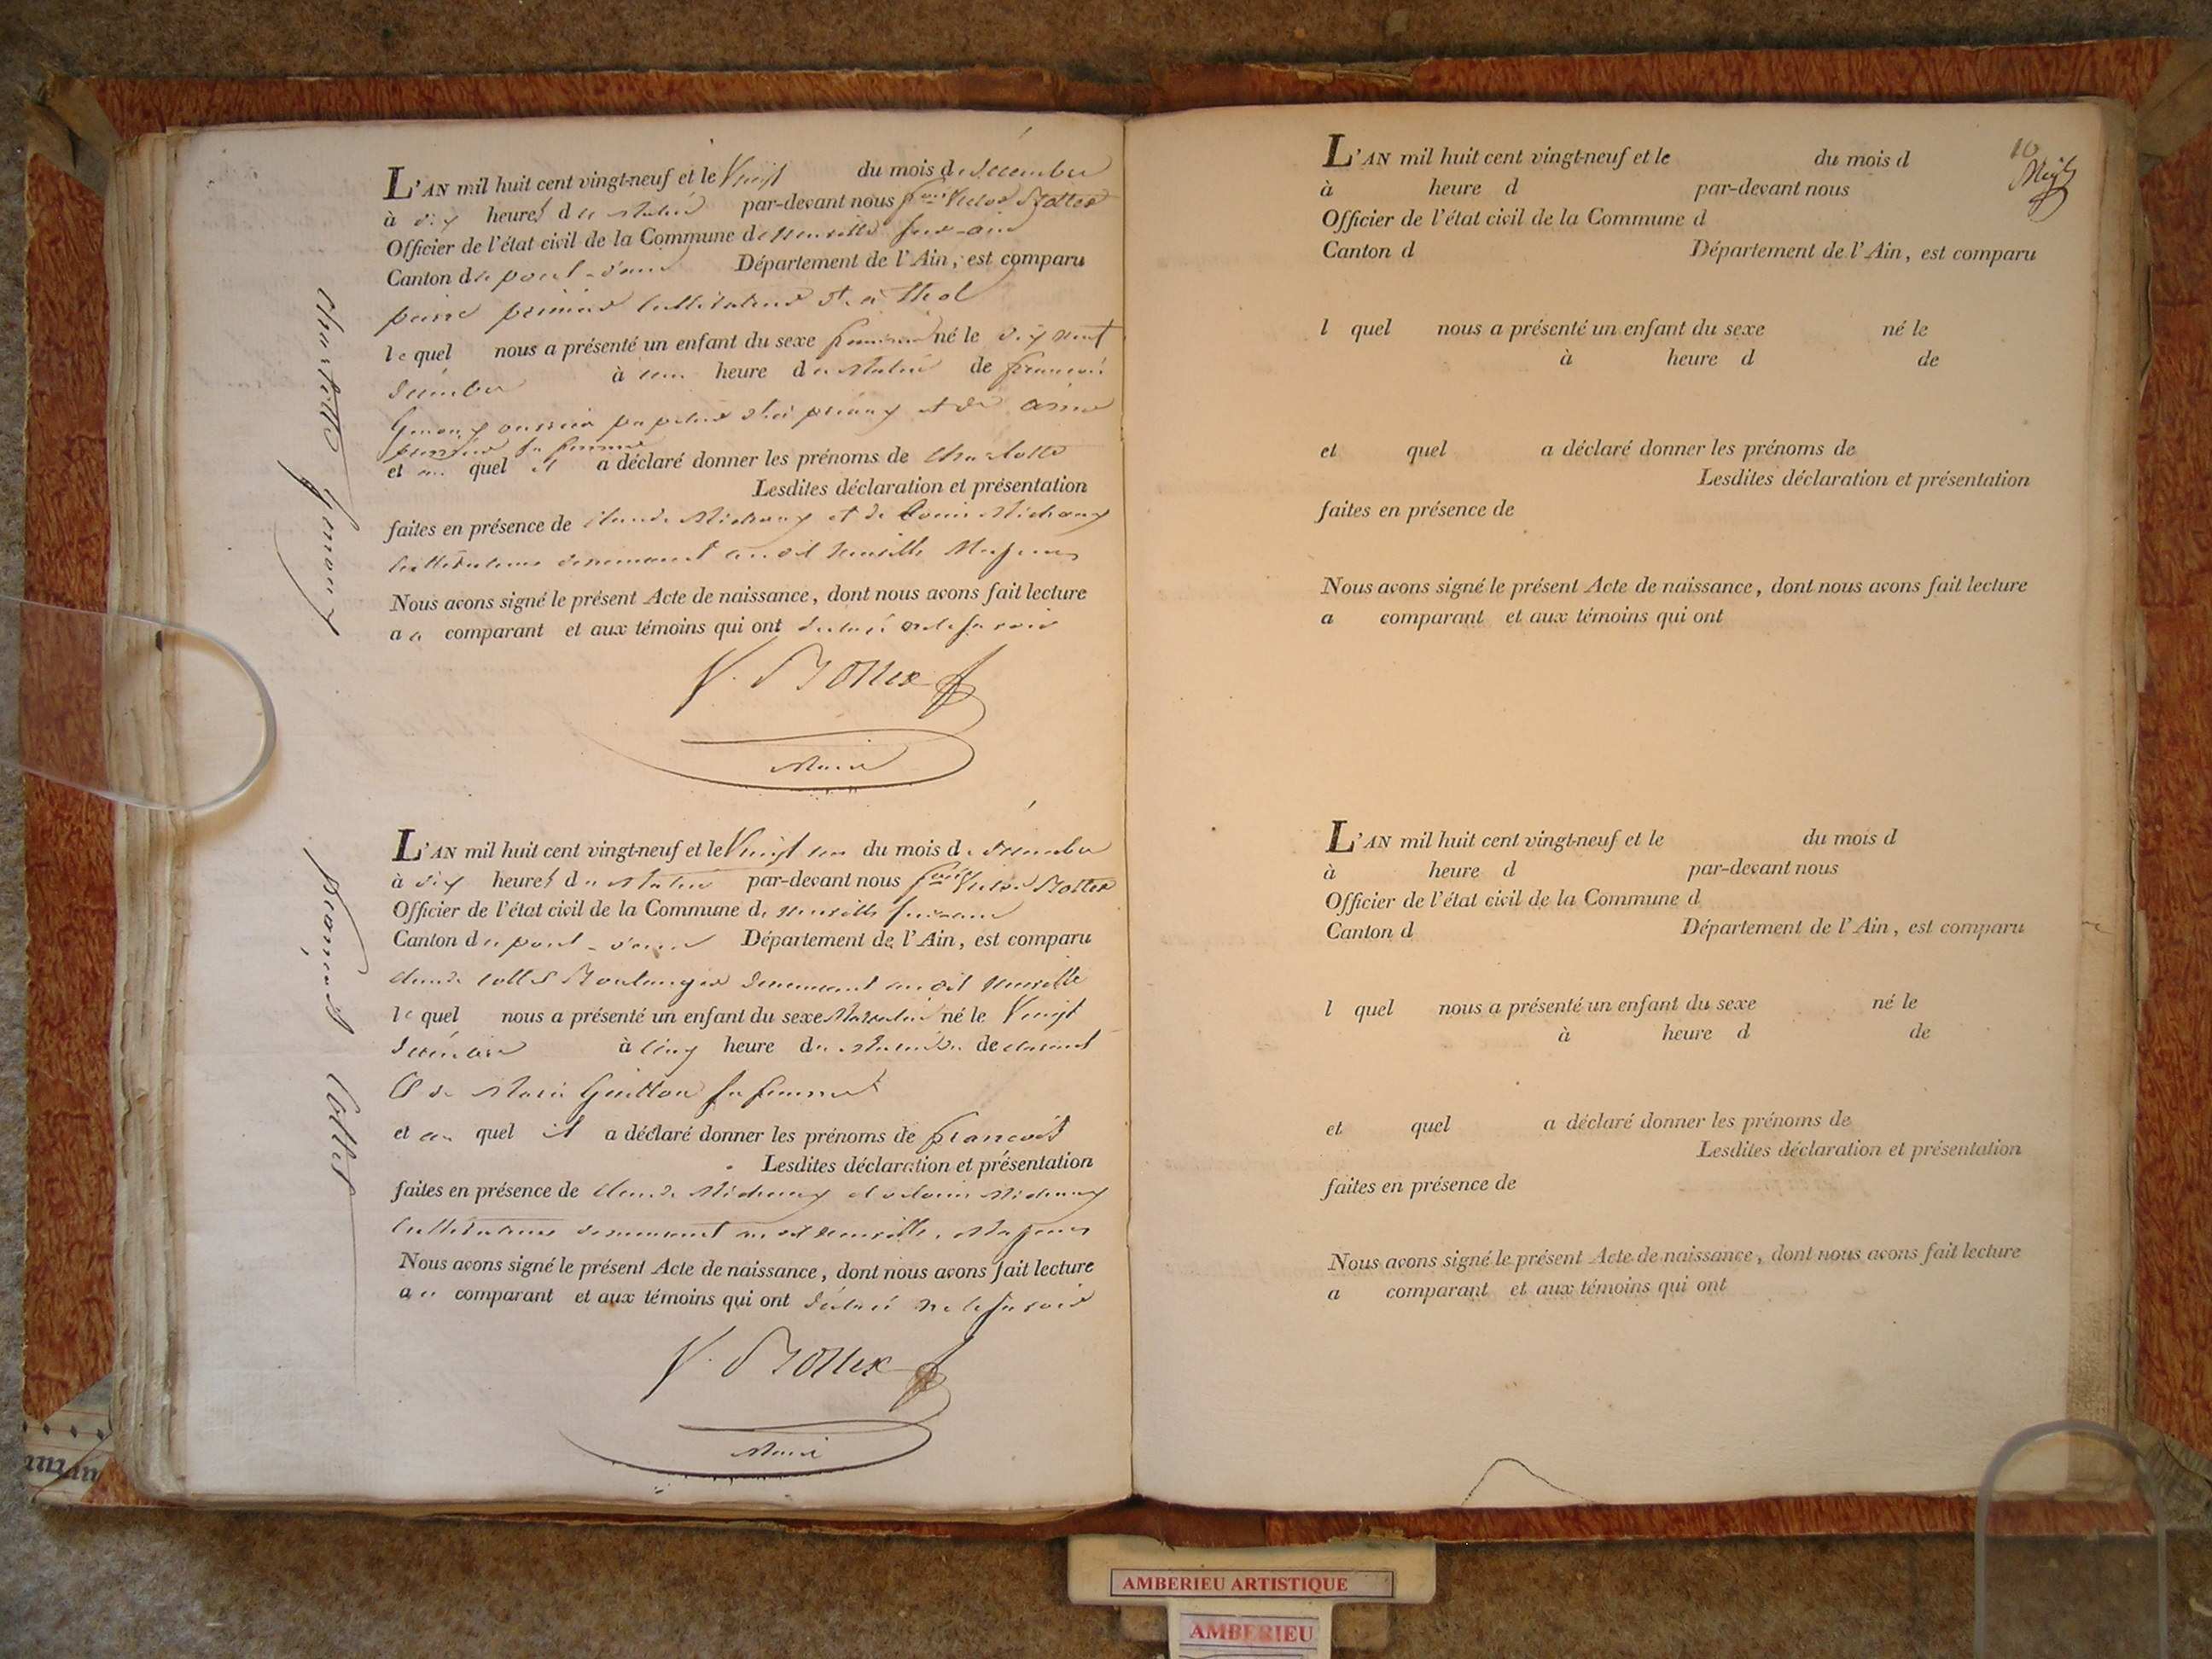 L'AN mil huit cent vingt-neuf et le Vingt du mois de décembre
à dix heures du Matin par-devant nous Victor Bottex
Officier de l'état civil de la Commune de neuville sur-ain
Canton du pont-d'ain Département de l'Ain, est comparu
pierre cultivateur
le quel nous a présenté un enfant du sexe feminin né le dix neuf
décembre à une heure du Matin de
et de
sa femme
et au quel il a déclaré donner les prénoms de Charlotte
Lesdites déclaration et présentation
faites en présence de Claude Michaux et de Louis Michaux
cultivateurs demeurant au dit neuville Majeurs
Nous avons signé le présent Acte de naissance, dont nous avons fait lecture
au comparant et aux témoins qui ont déclaré ne le savoir
V. Bottex
Maire
Charlotte
L'AN mil huit cent vingt-neuf et le Vingt un du mois de décembre
à dix heures du Matin par-devant nous Victor Bottex
Officier de l'état civil de la Commune de neuville sur-ain
Canton du pont-d'ain Département de l'Ain, est comparu
Claude Collet Boulanger demeurant au dit neuville
le quel nous a présenté un enfant du sexe Masculin né le Vingt
décembre à cinq heure du Matin de
Et de Marie Guillon sa femme
et au quel il a déclaré donner les prénoms de francois
Lesdites déclaration et présentation
faites en présence de Claude Michaux et de Louis Michaux
cultivateurs demeurant au dit neuville, Majeurs
Nous avons signé le présent Acte de naissance, dont nous avons fait lecture
au comparant et aux témoins qui ont déclaré ne le savoir
V. Bottex
Maire
francois Collet
10
L'AN mil huit cent vingt-neuf et le du mois d
à heure d par-devant nous
Officier de l'état civil de la Commune d
Canton d Département de l'Ain, est comparu
l quel nous a présenté un enfant du sexe né le
à heure d de
et quel a déclaré donner les prénoms de
Lesdites déclaration et présentation
faites en présence de
Nous avons signé le présent Acte de naissance, dont nous avons fait lecture
a comparant et aux témoins qui ont
L'AN mil huit cent vingt-neuf et le du mois d
à heure d par-devant nous
Officier de l'état civil de la Commune d
Canton d Département de l'Ain, est comparu
l quel nous a présenté un enfant du sexe né le
à heure d de
et quel a déclaré donner les prénoms de
Lesdites déclaration et présentation
faites en présence de
Nous avons signé le présent Acte de naissance, dont nous avons fait lecture
a comparant et aux témoins qui ont
AMBERIEU ARTISTIQUE
AMBERIEU